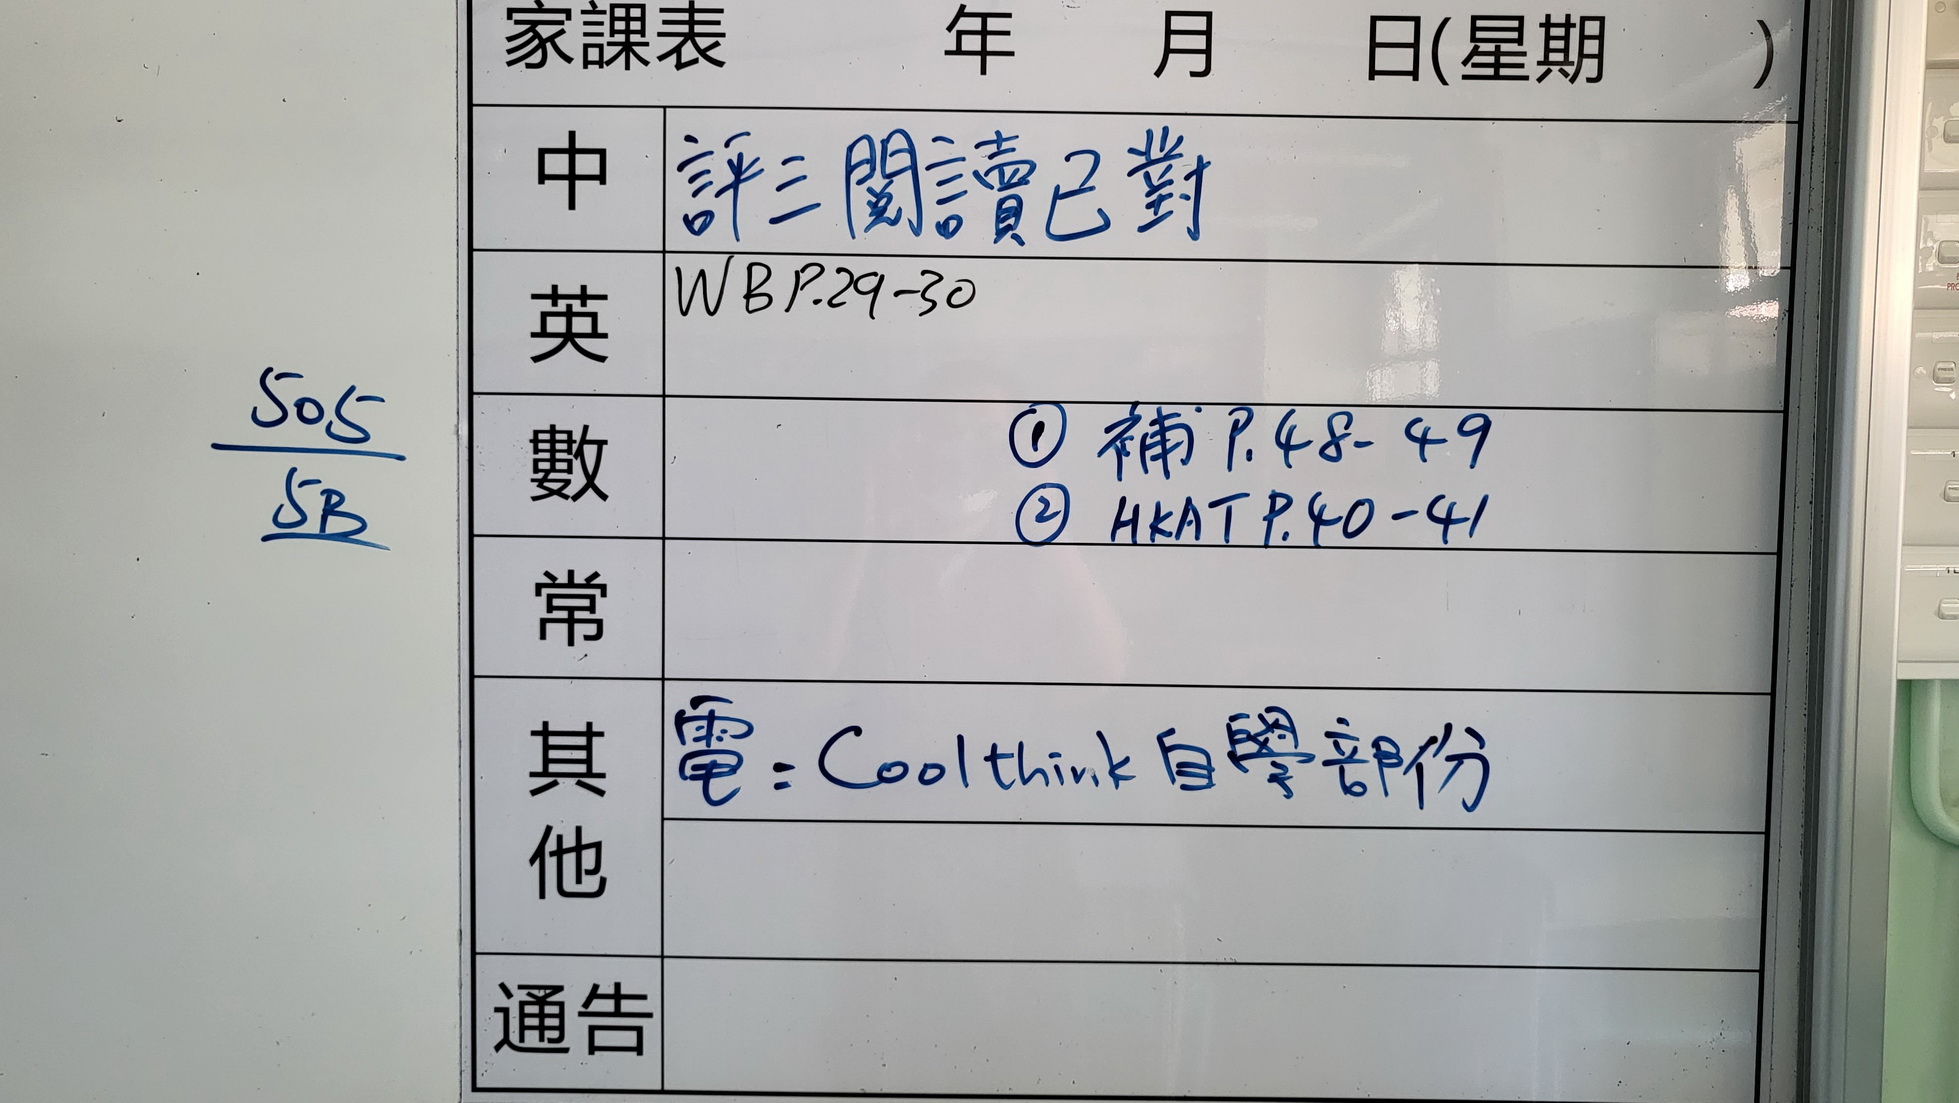 家課表 年 月 日(星期 )
中 評三閱讀已對
英 WB P.29-30
數 ① 補 P.48-49
② HKAT P.40-41
505
5B
常
其他 電：Coolthink自學部份
通告